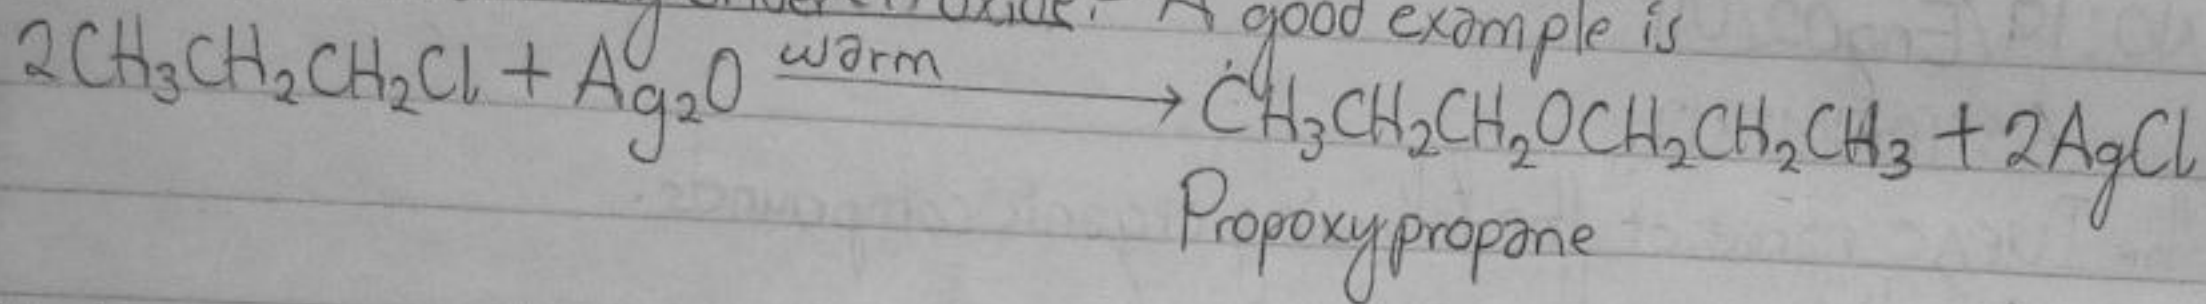 A good example is
2CH₃CH₂CH₂Cl + Ag₂O warm → CH₃CH₂CH₂OCH₂CH₂CH₃ + 2AgCl
Propoxypropane